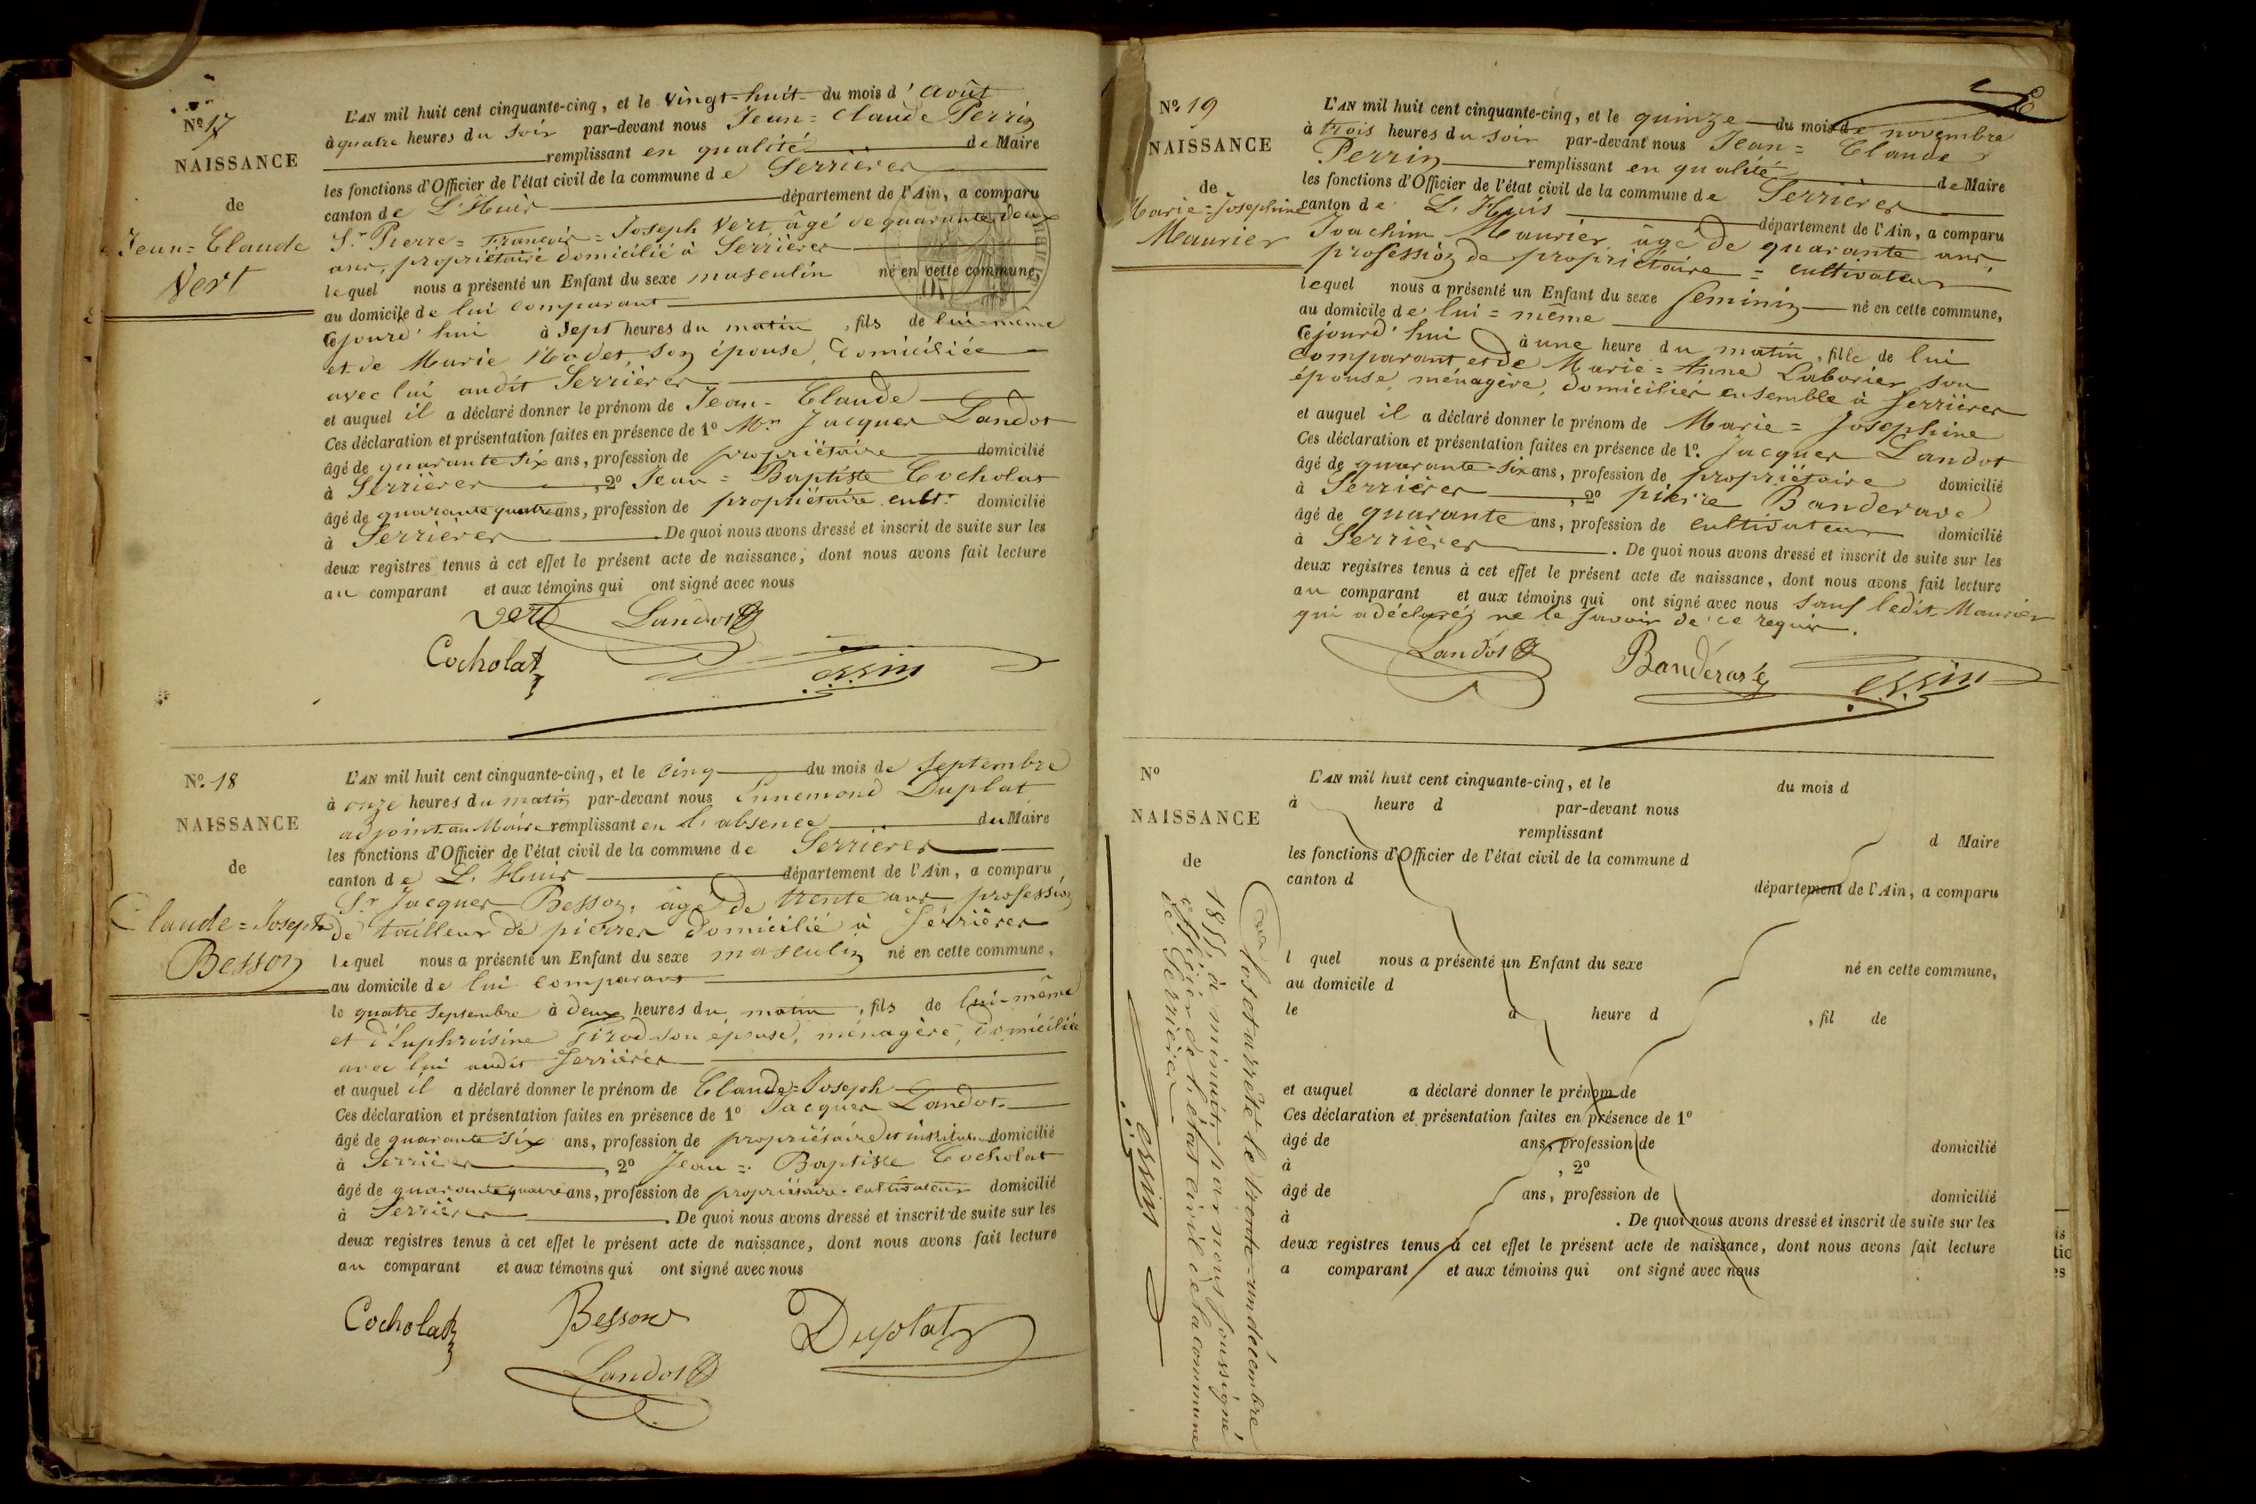 Nº 17
NAISSANCE
de
Jean=Claude
Vert
L'AN mil huit cent cinquante-cinq, et le vingt-huit du mois d'Août
à quatre heures du soir par-devant nous Jean=Claude Perrin
remplissant en qualité de Maire
les fonctions d'Officier de l'état civil de la commune de Serrières
canton de L'Huis département de l'Ain, a comparu
Sr Pierre=François=Joseph Vert, âgé de quarante deux
ans, propriétaire domicilié à Serrières
lequel nous a présenté un Enfant du sexe masculin né en cette commune,
au domicile de lui comparant
Cejourd'hui à Sept heures du matin, fils de lui-même
et de Marie son épouse, domiciliée
avec lui audit Serrières
et auquel il a déclaré donner le prénom de Jean-Claude
Ces déclaration et présentation faites en présence de 1º Mr Jacques Landot
âgé de quarante six ans, profession de propriétaire domicilié
à Serrières, 2º Jean=Baptiste Cocholat
âgé de quarante quatre ans, profession de propriétaire cultr domicilié
à Serrières. De quoi nous avons dressé et inscrit de suite sur les
deux registres tenus à cet effet le présent acte de naissance, dont nous avons fait lecture
au comparant et aux témoins qui ont signé avec nous
Vert Landot
Cocholat
Nº 18
NAISSANCE
de
Claude=Joseph
Besson
L'AN mil huit cent cinquante-cinq, et le cinq du mois de Septembre
à onze heures du matin par-devant nous Ennemond Duplat
adjoint au Maire remplissant en l'absence du Maire
les fonctions d'Officier de l'état civil de la commune de Serrières
canton de L'Huis département de l'Ain, a comparu
Sr Jacques Besson, âgé de trente ans profession
de tailleur de pierres domicilié à Serrières
lequel nous a présenté un Enfant du sexe masculin né en cette commune,
au domicile de lui comparant
le quatre Septembre à deux heures du matin, fils de lui-même
et d'Euphroisine Girod son épouse, ménagère, domiciliée
avec lui audit Serrières
et auquel il a déclaré donner le prénom de Claude=Joseph
Ces déclaration et présentation faites en présence de 1º Jacques Landot
âgé de quarante six ans, profession de propriétaire et instituteur domicilié
à Serrières, 2º Jean=Baptiste Cocholat
âgé de quarante quatre ans, profession de propriétaire-cultivateur domicilié
à Serrières. De quoi nous avons dressé et inscrit de suite sur les
deux registres tenus à cet effet le présent acte de naissance, dont nous avons fait lecture
au comparant et aux témoins qui ont signé avec nous
Cocholat Besson Duplat
Landot
Nº 19
NAISSANCE
de
Marie=Josephine
Maurier
L'AN mil huit cent cinquante-cinq, et le quinze du mois de novembre
à trois heures du soir par-devant nous Jean=Claude
Perrin remplissant en qualité de Maire
les fonctions d'Officier de l'état civil de la commune de Serrières
canton de L'Huis département de l'Ain, a comparu
Joachim Maurier, âgé de quarante ans,
profession de propriétaire=cultivateur
lequel nous a présenté un Enfant du sexe féminin né en cette commune,
au domicile de lui=même
Cejourd'hui à une heure du matin, fille de lui
comparant et de Marie=Anne Laborier son
épouse, ménagère, domiciliés ensemble à Serrières
et auquel il a déclaré donner le prénom de Marie=Josephine
Ces déclaration et présentation faites en présence de 1º. Jacques Landot
âgé de quarante-six ans, profession de propriétaire domicilié
à Serrières, 2º pierre Banderavé
âgé de quarante ans, profession de cultivateur domicilié
à Serrières. De quoi nous avons dressé et inscrit de suite sur les
deux registres tenus à cet effet le présent acte de naissance, dont nous avons fait lecture
au comparant et aux témoins qui ont signé avec nous sauf ledit Maurier
qui a déclaré ne le savoir de ce requis.
Landot
Nº
NAISSANCE
de
L'AN mil huit cent cinquante-cinq, et le du mois d
à heure d par-devant nous
remplissant d Maire
les fonctions d'Officier de l'état civil de la commune d
canton d département de l'Ain, a comparu
l quel nous a présenté un Enfant du sexe né en cette commune,
au domicile d
le à heure d , fil de
et auquel a déclaré donner le prénom de
Ces déclaration et présentation faites en présence de 1º
âgé de ans, profession de domicilié
à , 2º
âgé de ans, profession de domicilié
à . De quoi nous avons dressé et inscrit de suite sur les
deux registres tenus à cet effet le présent acte de naissance, dont nous avons fait lecture
a comparant et aux témoins qui ont signé avec nous
Clos et arrêté le trente-un décembre
1855, à minuit, par nous soussigné
officier de l'état civil de la commune
de Serrières